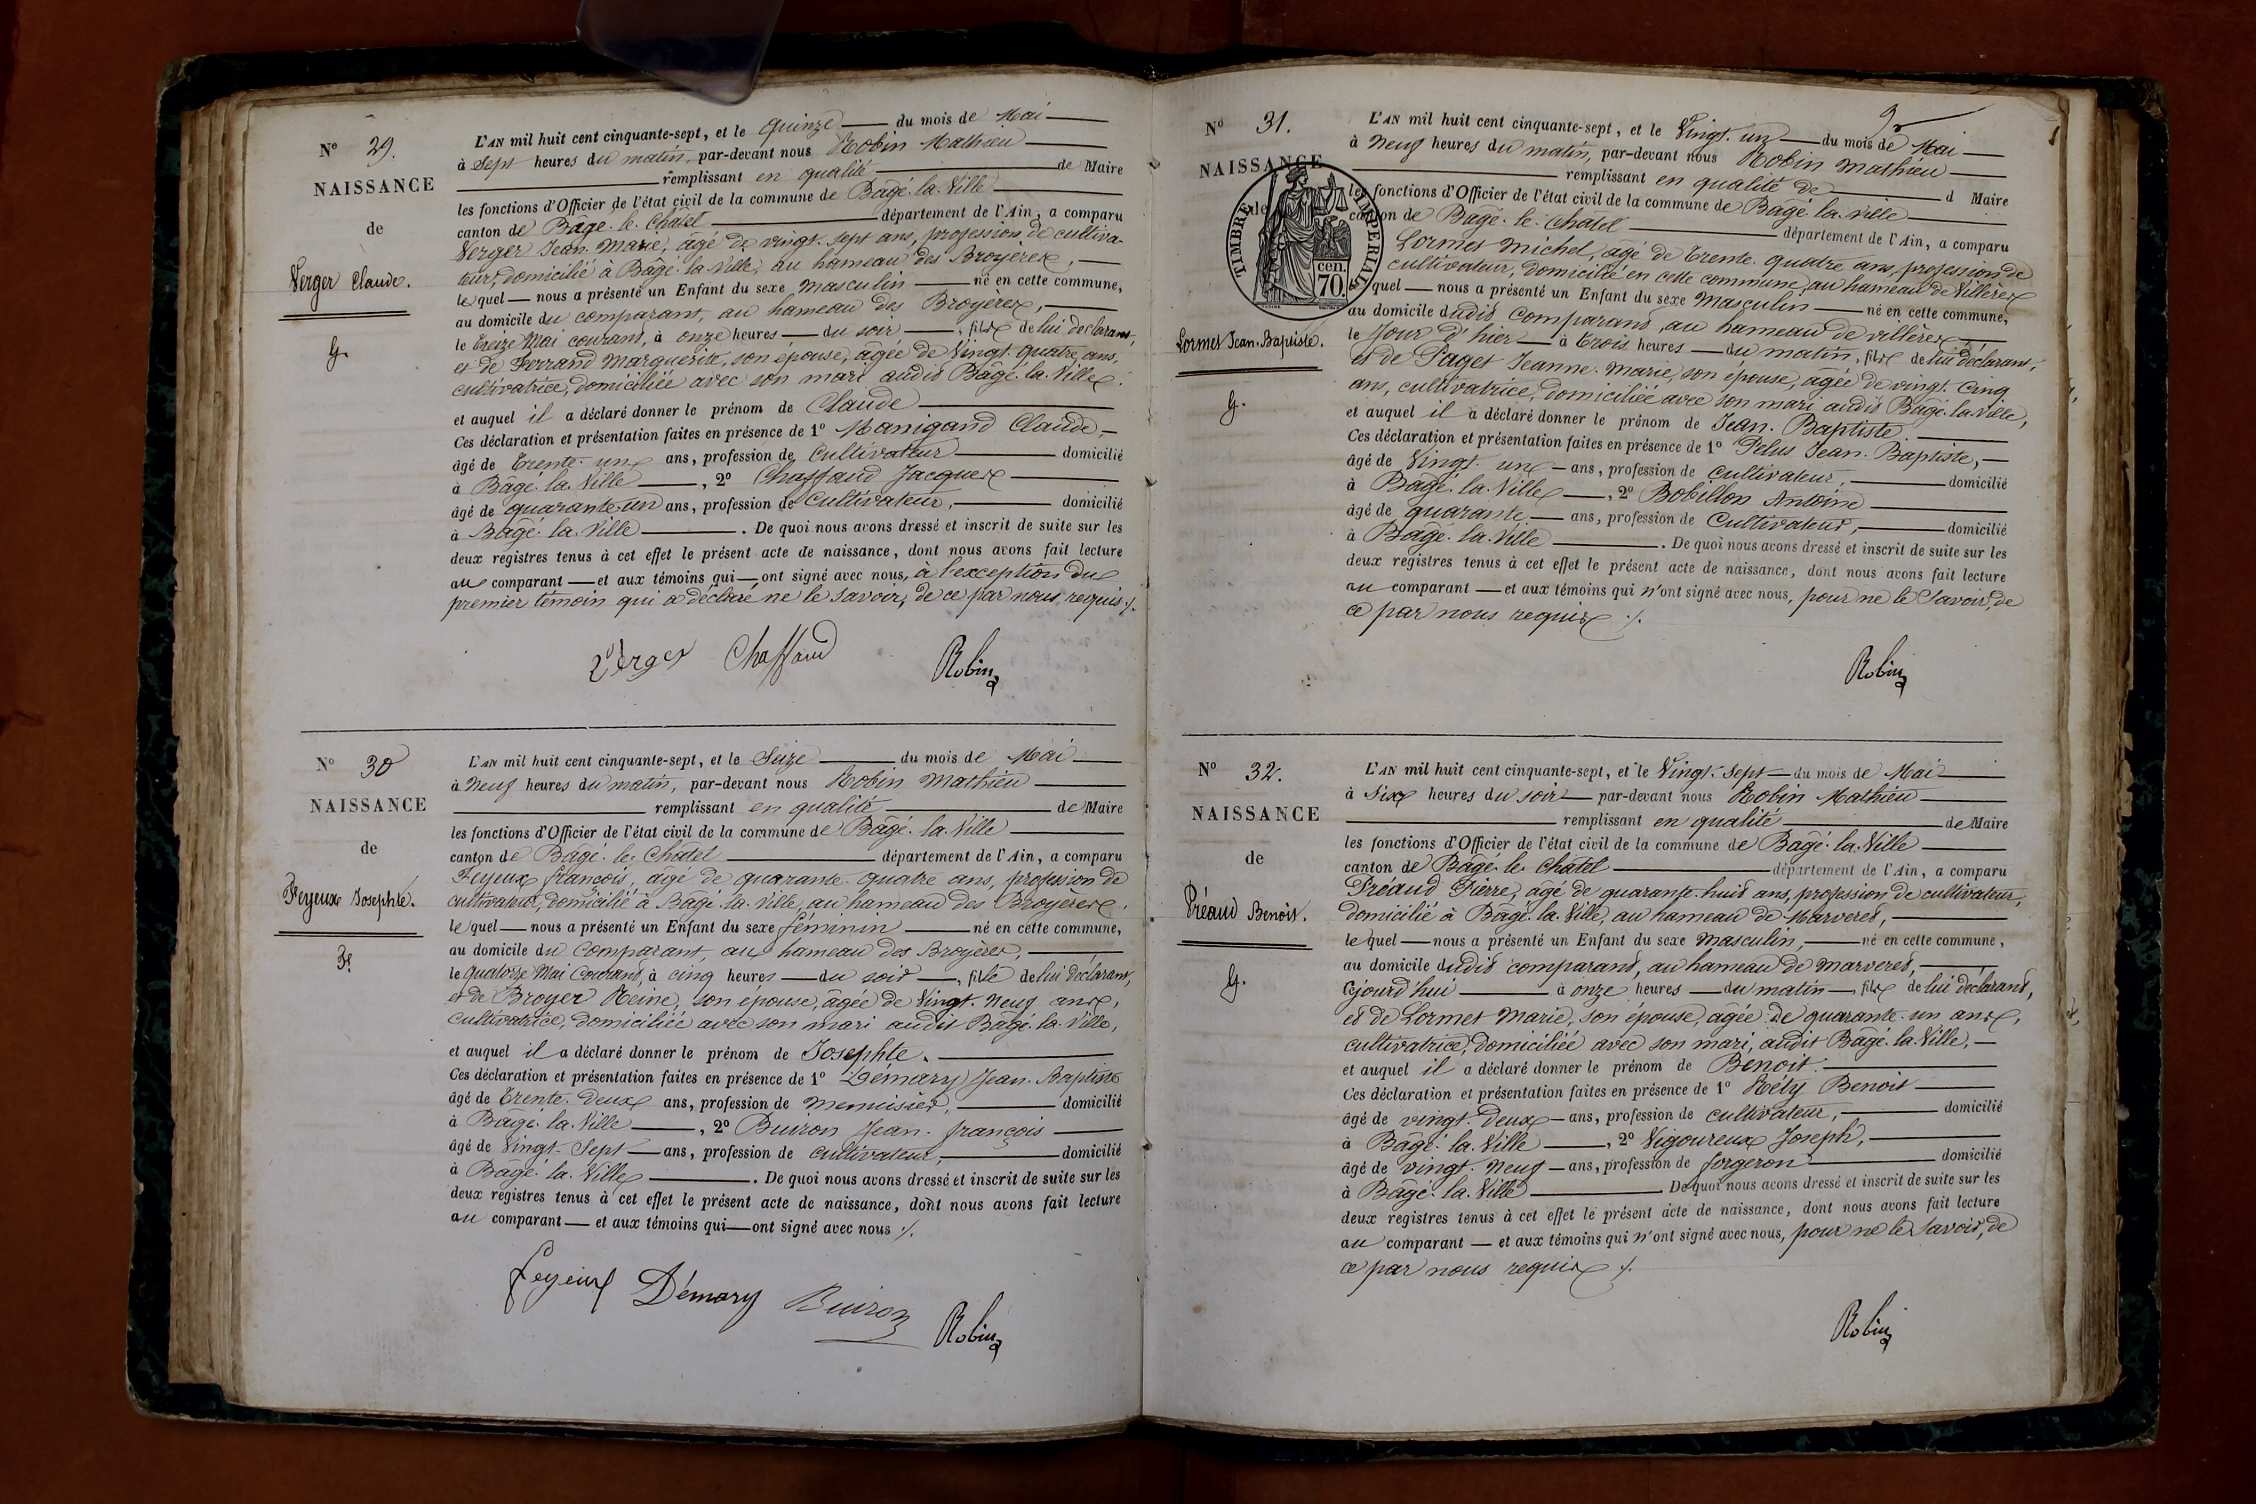 N° 29.
NAISSANCE
de
Verger Claude.
G.
L'AN mil huit cent cinquante-sept, et le Quinze du mois de Mai
à Sept heures du matin, par-devant nous Robin Mathieu
remplissant en qualité de Maire
les fonctions d'Officier de l'état civil de la commune de Bâgé-la-Ville
canton de Bâgé-le-Châtel département de l'Ain, a comparu
Verger Jean-Marie, âgé de vingt-sept ans, profession de cultiva-
teur, domicilié à Bâgé-la-Ville, au hameau des Broyères,
lequel nous a présenté un Enfant du sexe masculin né en cette commune,
au domicile du comparant, au hameau des Broyères,
le treize Mai courant, à onze heures du soir, fils de lui déclarant,
et de Ferrand Marguerite, son épouse, âgée de vingt-quatre ans,
cultivatrice, domiciliée avec son mari audit Bâgé-la-Ville.
et auquel il a déclaré donner le prénom de Claude
Ces déclaration et présentation faites en présence de 1° Manigand Claude,
âgé de trente-un ans, profession de Cultivateur domicilié
à Bâgé-la-Ville, 2° Chaffaud Jacques
âgé de quarante-un ans, profession de Cultivateur, domicilié
à Bâgé-la-Ville. De quoi nous avons dressé et inscrit de suite sur les
deux registres tenus à cet effet le présent acte de naissance, dont nous avons fait lecture
au comparant et aux témoins qui ont signé avec nous, à l'exception du
premier témoin qui a déclaré ne le savoir, de ce par nous requis ./.
Verger Chaffaud Robin
N° 30
NAISSANCE
de
Feyeux Josephte.
F.
L'AN mil huit cent cinquante-sept, et le Seize du mois de Mai
à Neuf heures du matin, par-devant nous Robin Mathieu
remplissant en qualité de Maire
les fonctions d'Officier de l'état civil de la commune de Bâgé-la-Ville
canton de Bâgé-le-Chatel département de l'Ain, a comparu
Feyeux françois, âgé de quarante-quatre ans, profession de
cultivateur, domicilié à Bâgé-la-Ville, au hameau des Broyères.
lequel nous a présenté un Enfant du sexe féminin né en cette commune,
au domicile du comparant, au hameau des Broyères,
le quatorze Mai Courant, à cinq heures du soir, fille de lui déclarant,
et de Broyer Reine, son épouse, âgée de Vingt-Neuf ans,
cultivatrice, domiciliée avec son mari audit Bâgé-la-Ville,
et auquel il a déclaré donner le prénom de Josephte.
Ces déclaration et présentation faites en présence de 1° Démary Jean-Baptiste
âgé de trente-deux ans, profession de menuisier, domicilié
à Bâgé-la-Ville, 2° Buiron Jean-françois
âgé de Vingt-Sept ans, profession de cultivateur, domicilié
à Bagé-la-Ville. De quoi nous avons dressé et inscrit de suite sur les
deux registres tenus à cet effet le présent acte de naissance, dont nous avons fait lecture
au comparant et aux témoins qui ont signé avec nous ./.
feyeux Démary Buiron Robin
9
N° 31.
NAISSANCE
de
TIMBRE IMPERIAL
70 cen.
Lormet Jean-Baptiste.
G.
L'AN mil huit cent cinquante-sept, et le Vingt-un du mois de Mai
à Neuf heures du matin, par-devant nous Robin Mathieu
remplissant en qualité de d Maire
les fonctions d'Officier de l'état civil de la commune de Bâgé-la-Ville
canton de Bagé-le-Chatel département de l'Ain, a comparu
Lormet Michel, âgé de trente-quatre ans, profession de
cultivateur, domicilié en cette commune, au hameau de Villères
lequel nous a présenté un Enfant du sexe Masculin né en cette commune,
au domicile dudit comparant, au hameau de villères,
le Jour d'hier à trois heures du matin, fils de lui déclarant,
et de Paget Jeanne-Marie, son épouse, âgée de vingt-cinq
ans, cultivatrice, domiciliée avec son mari audit Bâgé-la-Ville,
et auquel il a déclaré donner le prénom de Jean-Baptiste.
Ces déclaration et présentation faites en présence de 1° Pelus Jean-Baptiste,
âgé de Vingt-un ans, profession de cultivateur, domicilié
à Bagé-la-Ville, 2° Bobillon Antoine
âgé de quarante ans, profession de Cultivateur, domicilié
à Bâgé-la-Ville. De quoi nous avons dressé et inscrit de suite sur les
deux registres tenus à cet effet le présent acte de naissance, dont nous avons fait lecture
au comparant et aux témoins qui n'ont signé avec nous, pour ne le Savoir, de
ce par nous requis ./.
Robin
N° 32.
NAISSANCE
de
Préaud Benoît.
G.
L'AN mil huit cent cinquante-sept, et le Vingt-Sept du mois de Mai
à Six heures du soir par-devant nous Robin Mathieu
remplissant en qualité de Maire
les fonctions d'Officier de l'état civil de la commune de Bagé-la-Ville
canton de Bâgé-le-Chatel département de l'Ain, a comparu
Préaud Pierre, âgé de quarante-huit ans, profession de cultivateur,
domicilié à Bâgé-la-Ville, au hameau de Marveret,
lequel nous a présenté un Enfant du sexe masculin, né en cette commune,
au domicile dudit comparant, au hameau de marveret,
cejourd'hui à onze heures du matin, fils de lui déclarant,
et de Lormet Marie, son épouse, âgée de quarante-un ans,
cultivatrice, domiciliée avec son mari, audit Bâgé-la-Ville,
et auquel il a déclaré donner le prénom de Benoit.
Ces déclaration et présentation faites en présence de 1° Réty Benoit
âgé de vingt-deux ans, profession de cultivateur, domicilié
à Bagé-la-Ville, 2° Vigoureux Joseph,
âgé de vingt-neuf ans, profession de forgeron domicilié
à Bâgé-la-Ville. De quoi nous avons dressé et inscrit de suite sur les
deux registres tenus à cet effet le présent acte de naissance, dont nous avons fait lecture
au comparant et aux témoins qui n'ont signé avec nous, pour ne le Savoir, de
ce par nous requis ./.
Robin